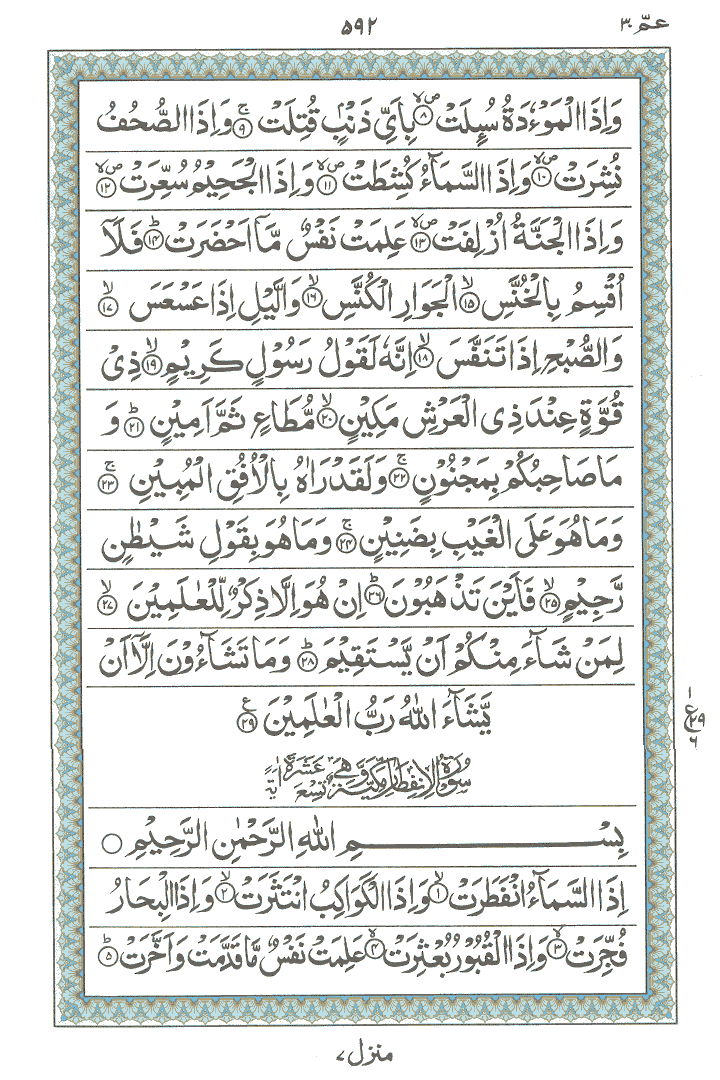 عمّ ٣٠
٥٩٢
وَاِذَا الْمَوْءٗدَةُ سُىِٕلَتْ ۪ۙۙ‏ ﴿۸﴾ بِاَىِّ ذَنْۢبٍ قُتِلَتْ ۚ‏ ﴿۹﴾ وَاِذَا الصُّحُفُ
نُشِرَتْ ۪ۙۙ‏ ﴿۱۰﴾ وَاِذَا السَّمَآءُ كُشِطَتْ ۪ۙۙ‏ ﴿۱۱﴾ وَاِذَا الْجَحِيْمُ سُعِّرَتْ ۪ۙۙ‏ ﴿۱۲﴾
وَاِذَا الْجَنَّةُ اُزْلِفَتْ ۪ۙۙ‏ ﴿۱۳﴾ عَلِمَتْ نَفْسٌ مَّاۤ اَحْضَرَتْ ؕ‏ ﴿۱۴﴾ فَلَاۤ
اُقْسِمُ بِالْخُنَّسِ ۙ‏ ﴿۱۵﴾ الْجَوَارِ الْكُنَّسِ ۙ‏ ﴿۱۶﴾ وَالَّيْلِ اِذَا عَسْعَسَ ۙ‏ ﴿۱۷﴾
وَالصُّبْحِ اِذَا تَنَفَّسَ ۙ‏ ﴿۱۸﴾ اِنَّهٗ لَقَوْلُ رَسُوْلٍ كَرِيْمٍ ۙ‏ ﴿۱۹﴾ ذِىْ
قُوَّةٍ عِنْدَ ذِى الْعَرْشِ مَكِيْنٍ ۙ‏ ﴿۲۰﴾ مُّطَاعٍ ثَمَّ اَمِيْنٍ ؕ‏ ﴿۲۱﴾ وَ
مَا صَاحِبُكُمْ بِمَجْنُوْنٍ ۚ‏ ﴿۲۲﴾ وَلَقَدْ رَاٰهُ بِالْاُفُقِ الْمُبِيْنِ ۚ‏ ﴿۲۳﴾
وَمَا هُوَ عَلَى الْغَيْبِ بِضَنِيْنٍ ۚ‏ ﴿۲۴﴾ وَمَا هُوَ بِقَوْلِ شَيْطٰنٍ
رَّجِيْمٍ ۙ‏ ﴿۲۵﴾ فَاَيْنَ تَذْهَبُوْنَ ؕ‏ ﴿۲۶﴾ اِنْ هُوَ اِلَّا ذِكْرٌ لِّلْعٰلَمِيْنَ ۙ‏ ﴿۲۷﴾
لِمَنْ شَآءَ مِنْكُمْ اَنْ يَّسْتَقِيْمَ ؕ‏ ﴿۲۸﴾ وَمَا تَشَآءُوْنَ اِلَّاۤ اَنْ
يَّشَآءَ اللّٰهُ رَبُّ الْعٰلَمِيْنَ ﴿۲۹﴾ ع
١ ع ٢٩ ٦
سُوْرَةُ الْاِنْفِطَارِ مَكِّيَّةٌ وَّهِيَ تِسْعَ عَشْرَةَ اٰيَةً
بِسْمِ اللّٰهِ الرَّحْمٰنِ الرَّحِيْمِ ○
اِذَا السَّمَآءُ انْفَطَرَتْ ۙ‏ ﴿۱﴾ وَاِذَا الْكَوَاكِبُ انْتَثَرَتْ ۙ‏ ﴿۲﴾ وَاِذَا الْبِحَارُ
فُجِّرَتْ ۙ‏ ﴿۳﴾ وَاِذَا الْقُبُوْرُ بُعْثِرَتْ ۙ‏ ﴿۴﴾ عَلِمَتْ نَفْسٌ مَّا قَدَّمَتْ وَاَخَّرَتْ ؕ‏ ﴿۵﴾
منزل ٧